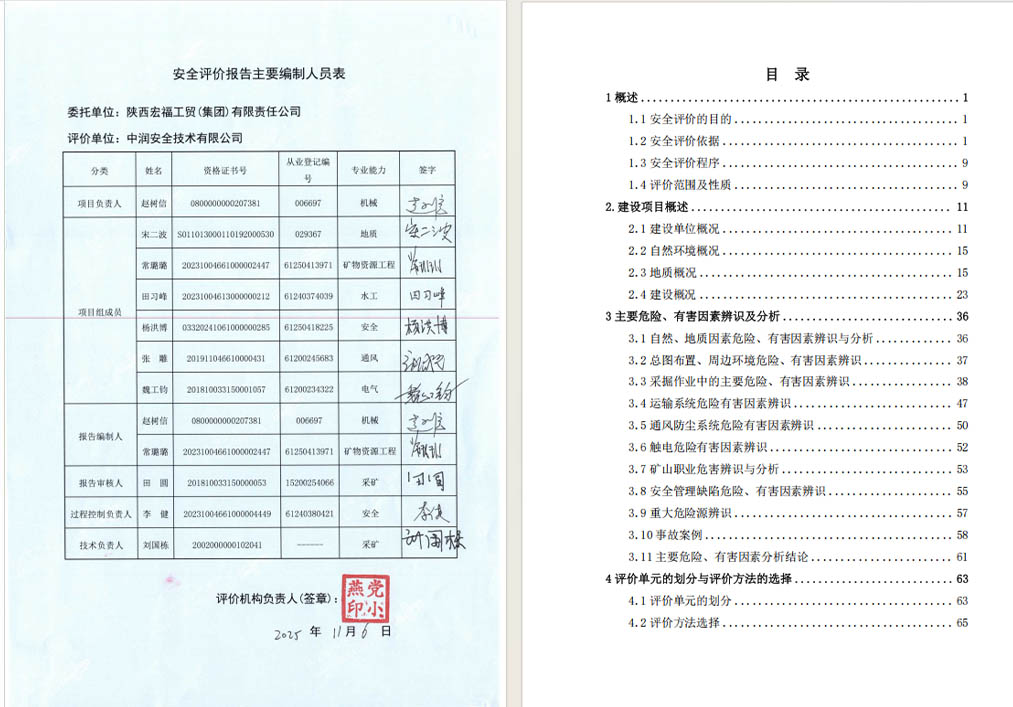 安全评价报告主要编制人员表
委托单位：陕西宏福工贸(集团)有限责任公司
评价单位：中润安全技术有限公司
分类 姓名 资格证书号 从业登记编号 专业能力 签字
项目负责人 赵树信 0800000000207381 006697 机械
项目组成员 宋二波 S011013000110192000530 029367 地质 宋二波
常璐璐 20231004661000002447 61250413971 矿物资源工程
田习峰 20231004613000000212 61240374039 水工 田习峰
杨洪博 03320241061000000285 61250418225 安全 杨洪博
张雕 201911046610000431 61200245683 通风
魏工钧 201810033150001057 61200234322 电气
报告编制人 赵树信 0800000000207381 006697 机械
常璐璐 20231004661000002447 61250413971 矿物资源工程
报告审核人 田圆 201810033150000053 15200254066 采矿 田圆
过程控制负责人 李健 20231004661000004449 61240380421 安全 李健
技术负责人 刘国栋 2002000000102041 ------ 采矿 刘国栋
评价机构负责人(签章)：
燕党
印小
2025 年 11 月 6 日
目 录
1 概述 1
1.1 安全评价的目的 1
1.2 安全评价依据 1
1.3 安全评价程序 9
1.4 评价范围及性质 9
2.建设项目概述 11
2.1 建设单位概况 11
2.2 自然环境概况 15
2.3 地质概况 15
2.4 建设概况 23
3 主要危险、有害因素辨识及分析 36
3.1 自然、地质因素危险、有害因素辨识与分析 36
3.2 总图布置、周边环境危险、有害因素辨识 37
3.3 采掘作业中的主要危险、有害因素辨识 38
3.4 运输系统危险有害因素辨识 47
3.5 通风防尘系统危险有害因素辨识 50
3.6 触电危险有害因素辨识 52
3.7 矿山职业危害辨识与分析 53
3.8 安全管理缺陷危险、有害因素辨识 55
3.9 重大危险源辨识 57
3.10 事故案例 58
3.11 主要危险、有害因素分析结论 61
4 评价单元的划分与评价方法的选择 63
4.1 评价单元的划分 63
4.2 评价方法选择 65